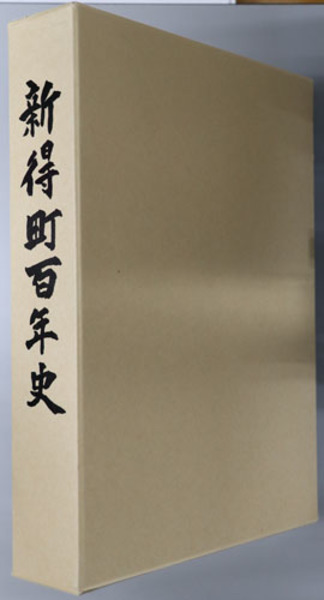 新得町百年史